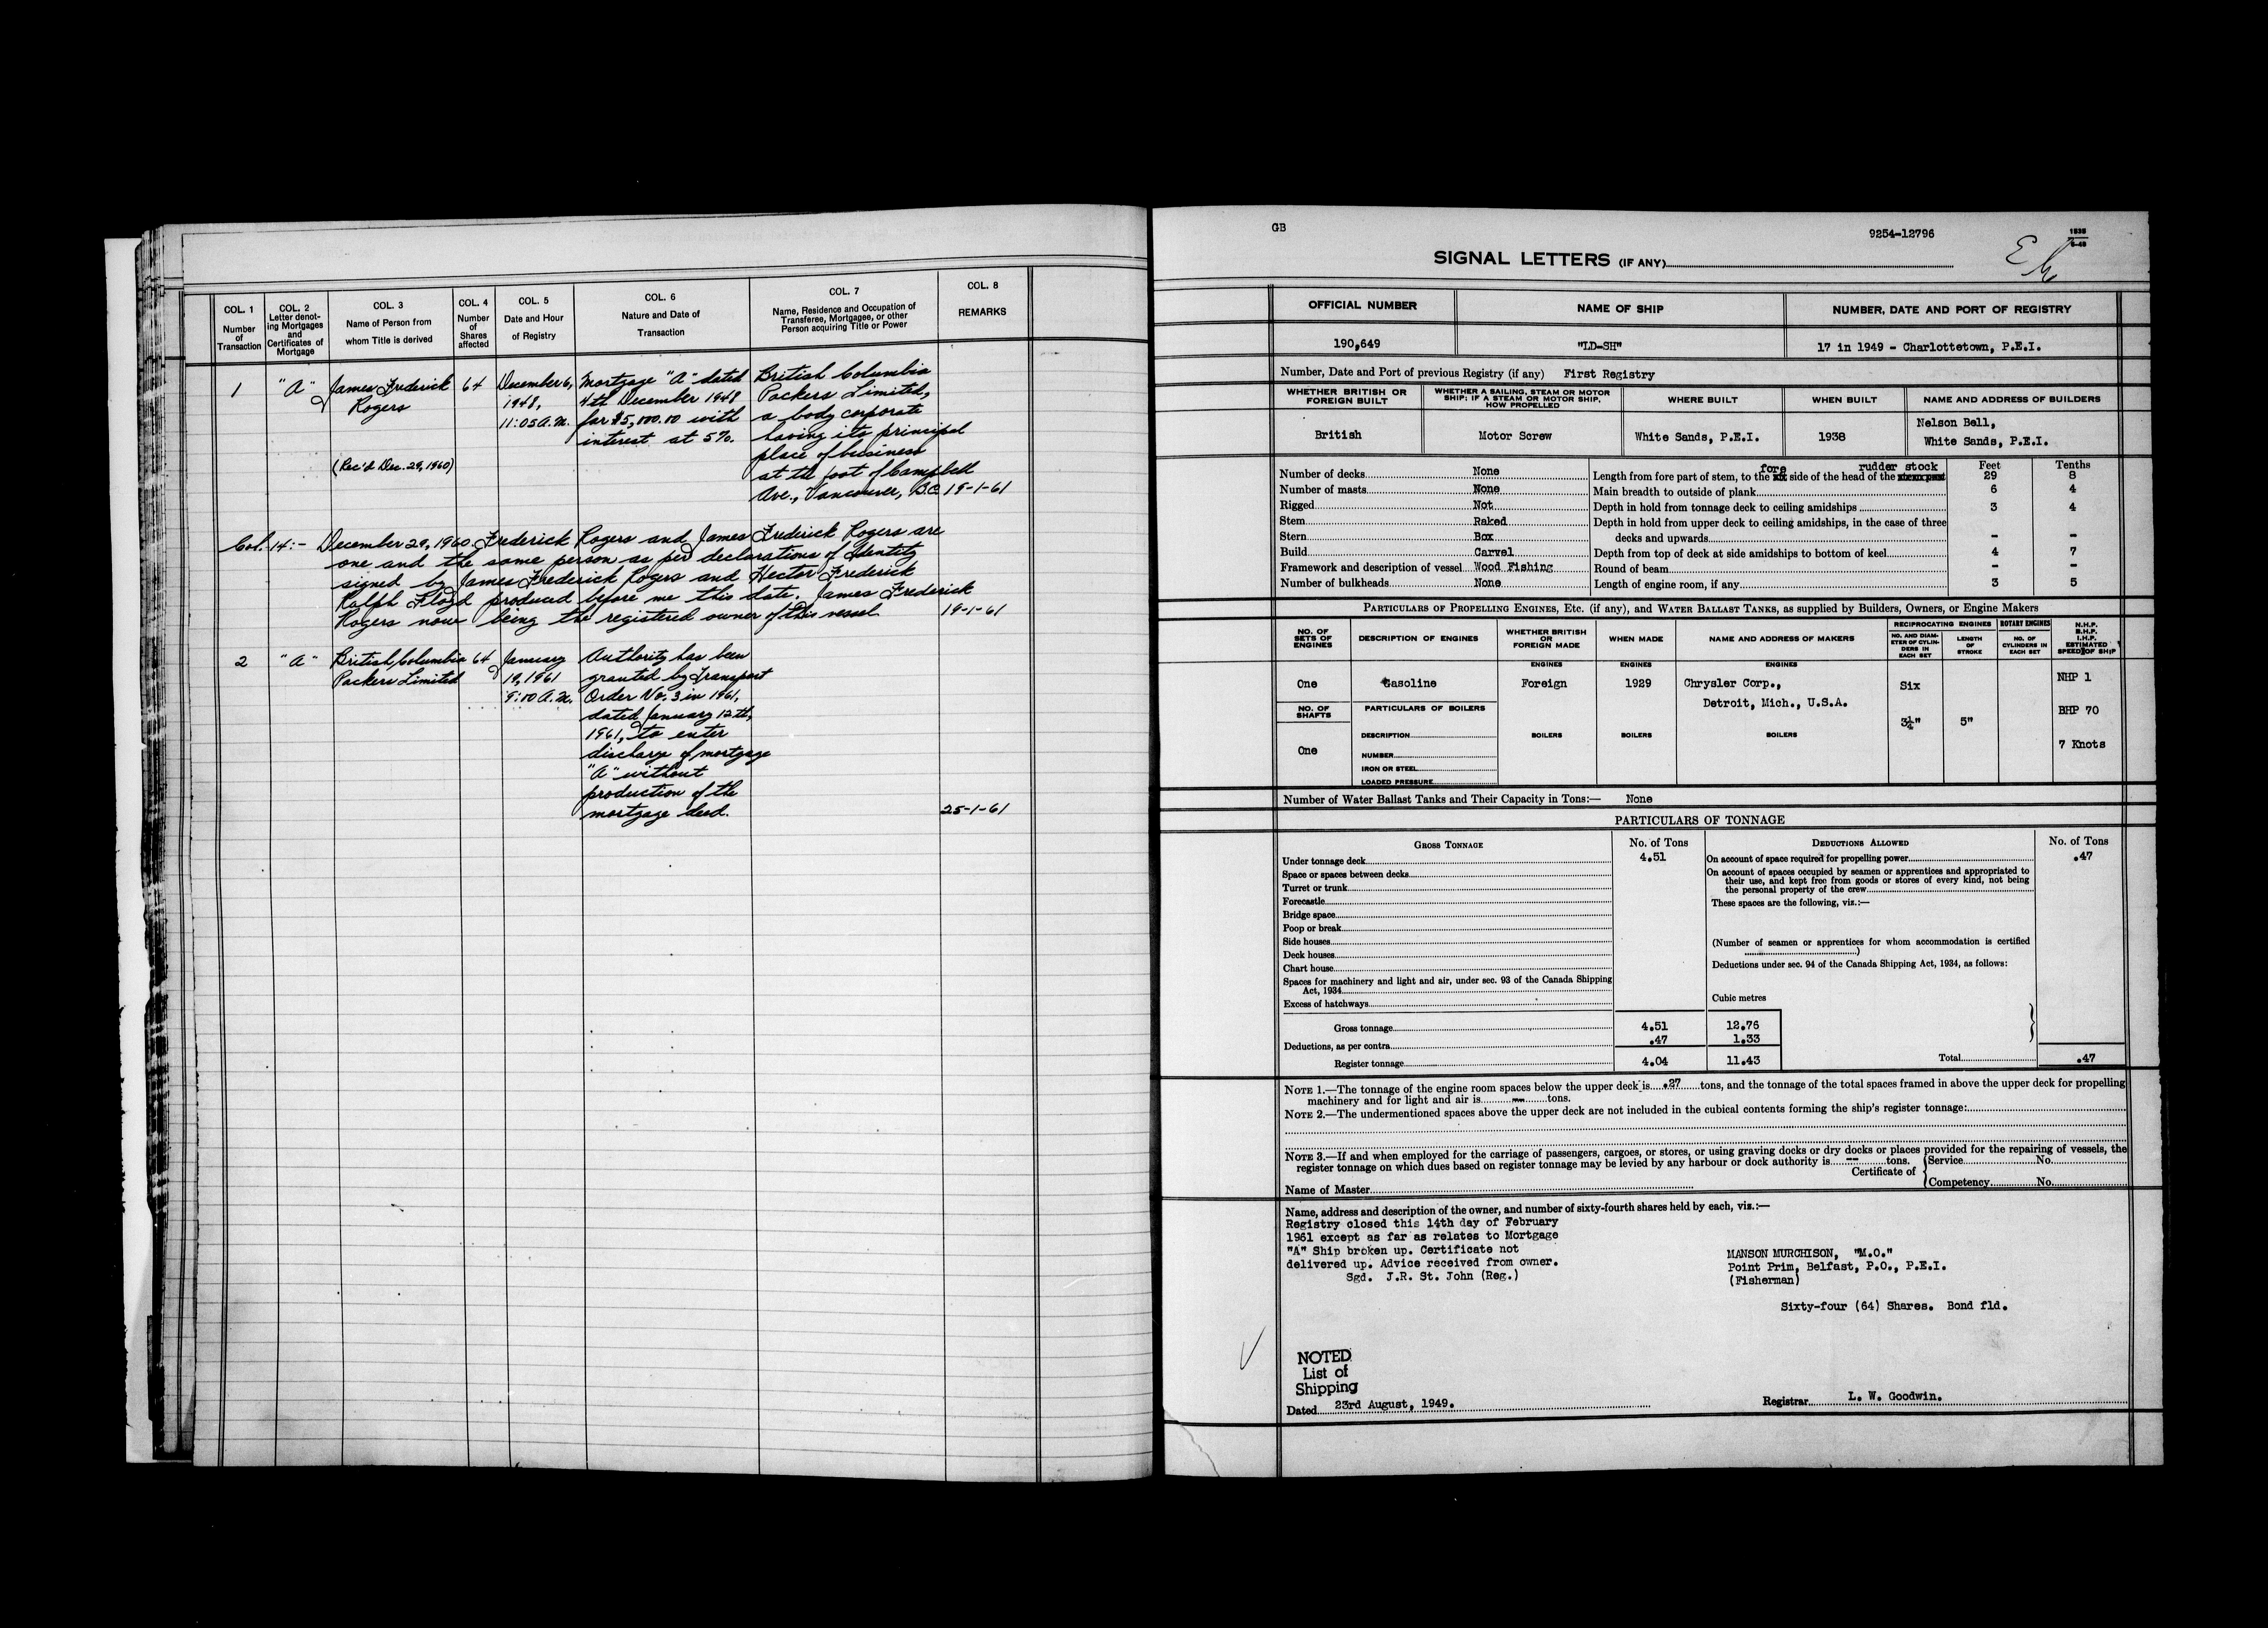 COL. 1
Number
of
Transaction
COL. 2
Letter denot-
ing Mortgages
and
Certificates of
Mortgage
COL. 3
Name of Person from
whom Title is derived
COL. 4
Number
of
Shares
affected
COL. 5
Date and Hour
of Registry
COL. 6
Nature and Date of
Transaction
COL. 7
Name, Residence and Occupation of
Transferee, Mortgagee, or other
Person acquiring Title or Power
COL. 8
REMARKS
1
"A"
James Frederick
Rogers
(Rec'd Dec. 29, 1960)
64
December 6,
1948,
11:05 A.M.
Mortgage "A" dated
4th December 1948
for $5,000.00 with
interest at 5%.
British Columbia
Packers Limited,
a body corporate
having its principal
place of business
at the foot of Campbell
Ave., Vancouver, B.C.
19-1-61
Col. 14:- December 29, 1960. Frederick Rogers and James Frederick Rogers are
one and the same person as per declarations of Identity
signed by James Frederick Rogers and Hector Frederick
Ralph Floyd produced before me this date. James Frederick
Rogers now being the registered owner of this vessel 19-1-61
2
"A"
British Columbia
Packers Limited
64
January
19, 1961
9:10 A.M.
Authority has been
granted by Transport
Order No. 3 in 1961,
dated January 12th,
1961, to enter
discharge of mortgage
"A" without
production of the
mortgage deed.
25-1-61
GB
9254-12796
SIGNAL LETTERS (IF ANY)
OFFICIAL NUMBER
NAME OF SHIP
NUMBER, DATE AND PORT OF REGISTRY
190,649
"LD-SH"
17 in 1949 - Charlottetown, P.E.I.
Number, Date and Port of previous Registry (if any) First Registry
WHETHER BRITISH OR
FOREIGN BUILT
WHETHER A SAILING, STEAM OR MOTOR
SHIP; IF A STEAM OR MOTOR SHIP,
HOW PROPELLED
WHERE BUILT
WHEN BUILT
NAME AND ADDRESS OF BUILDERS
British
Motor Screw
White Sands, P.E.I.
1938
Nelson Bell,
White Sands, P.E.I.
Number of decks None
Number of masts None
Rigged Not
Stem Raked
Stern Box
Build Carvel
Framework and description of vessel Wood Fishing
Number of bulkheads None
Feet Tenths
fore rudder stock
Length from fore part of stem, to the side of the head of the 29 8
Main breadth to outside of plank 6 4
Depth in hold from tonnage deck to ceiling amidships 3 4
Depth in hold from upper deck to ceiling amidships, in the case of three
decks and upwards - -
Depth from top of deck at side amidships to bottom of keel 4 7
Round of beam - -
Length of engine room, if any 3 5
PARTICULARS OF PROPELLING ENGINES, Etc. (if any), and WATER BALLAST TANKS, as supplied by Builders, Owners, or Engine Makers
NO. OF
SETS OF
ENGINES
DESCRIPTION OF ENGINES
WHETHER BRITISH
OR
FOREIGN MADE
WHEN MADE
NAME AND ADDRESS OF MAKERS
RECIPROCATING ENGINES
NO. AND DIAM-
ETER OF CYLIN-
DERS IN
EACH SET
LENGTH
OF
STROKE
ROTARY ENGINES
NO. OF
CYLINDERS IN
EACH SET
N.H.P.
B.H.P.
I.H.P.
ESTIMATED
SPEED OF SHIP
ENGINES
ENGINES
ENGINES
One
Gasoline
Foreign
1929
Chrysler Corp.,
Detroit, Mich., U.S.A.
Six
3¼"
5"
NHP 1
BHP 70
7 Knots
NO. OF
SHAFTS
One
PARTICULARS OF BOILERS
DESCRIPTION
NUMBER
IRON OR STEEL
LOADED PRESSURE
BOILERS
BOILERS
BOILERS
Number of Water Ballast Tanks and Their Capacity in Tons:— None
PARTICULARS OF TONNAGE
GROSS TONNAGE
No. of Tons
Under tonnage deck 4.51
Space or spaces between decks
Turret or trunk
Forecastle
Bridge space
Poop or break
Side houses
Deck houses
Chart house
Spaces for machinery and light and air, under sec. 93 of the Canada Shipping
Act, 1934
Excess of hatchways
Gross tonnage 4.51 12.76
Deductions, as per contra .47 1.33
Register tonnage 4.04 11.43
DEDUCTIONS ALLOWED
No. of Tons
On account of space required for propelling power .47
On account of spaces occupied by seamen or apprentices and appropriated to
their use, and kept free from goods or stores of every kind, not being
the personal property of the crew
These spaces are the following, viz.:—
(Number of seamen or apprentices for whom accommodation is certified
)
Deductions under sec. 94 of the Canada Shipping Act, 1934, as follows:
Cubic metres
Total .47
NOTE 1.—The tonnage of the engine room spaces below the upper deck is .27 tons, and the tonnage of the total spaces framed in above the upper deck for propelling
machinery and for light and air is — tons.
NOTE 2.—The undermentioned spaces above the upper deck are not included in the cubical contents forming the ship's register tonnage:
NOTE 3.—If and when employed for the carriage of passengers, cargoes, or stores, or using graving docks or dry docks or places provided for the repairing of vessels, the
register tonnage on which dues based on register tonnage may be levied by any harbour or dock authority is -- tons.
Certificate of { Service No.
Competency No.
Name of Master
Name, address and description of the owner, and number of sixty-fourth shares held by each, viz.:—
Registry closed this 14th day of February
1961 except as far as relates to Mortgage
"A" Ship broken up. Certificate not
delivered up. Advice received from owner.
Sgd. J.R. St. John (Reg.)
MANSON MURCHISON, "M.O."
Point Prim, Belfast, P.O., P.E.I.
(Fisherman)
Sixty-four (64) Shares. Bond fld.
NOTED
List of
Shipping
Dated 23rd August, 1949.
Registrar L. W. Goodwin.